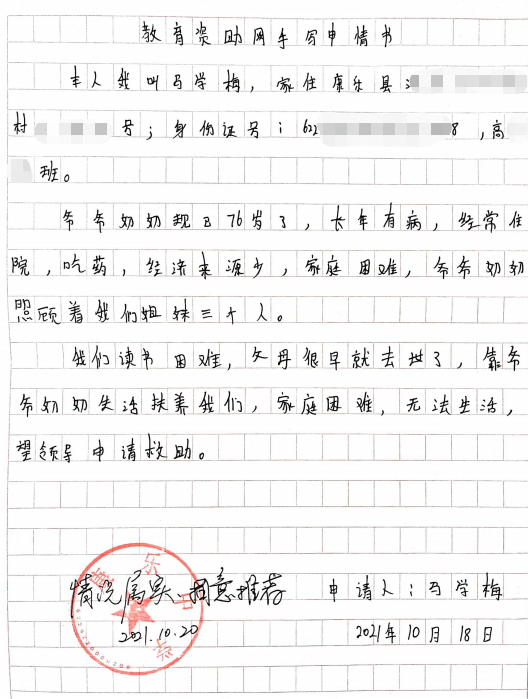 教育资助网手写申情书
本人我叫马学梅，家住康乐县
村 号；身份证号：622 8，高
班。
爷爷奶奶现已76岁了，长年有病，经常住
院，吃药，经济来源少，家庭困难，爷爷奶奶
照顾着我们姐妹三个人。
我们读书困难，父母很早就去世了，靠爷
爷奶奶生活扶养我们，家庭困难，无法生活，
望领导申请救助。
情况属实、同意推荐
2021.10.20
申请人：马学梅
2021年10月18日